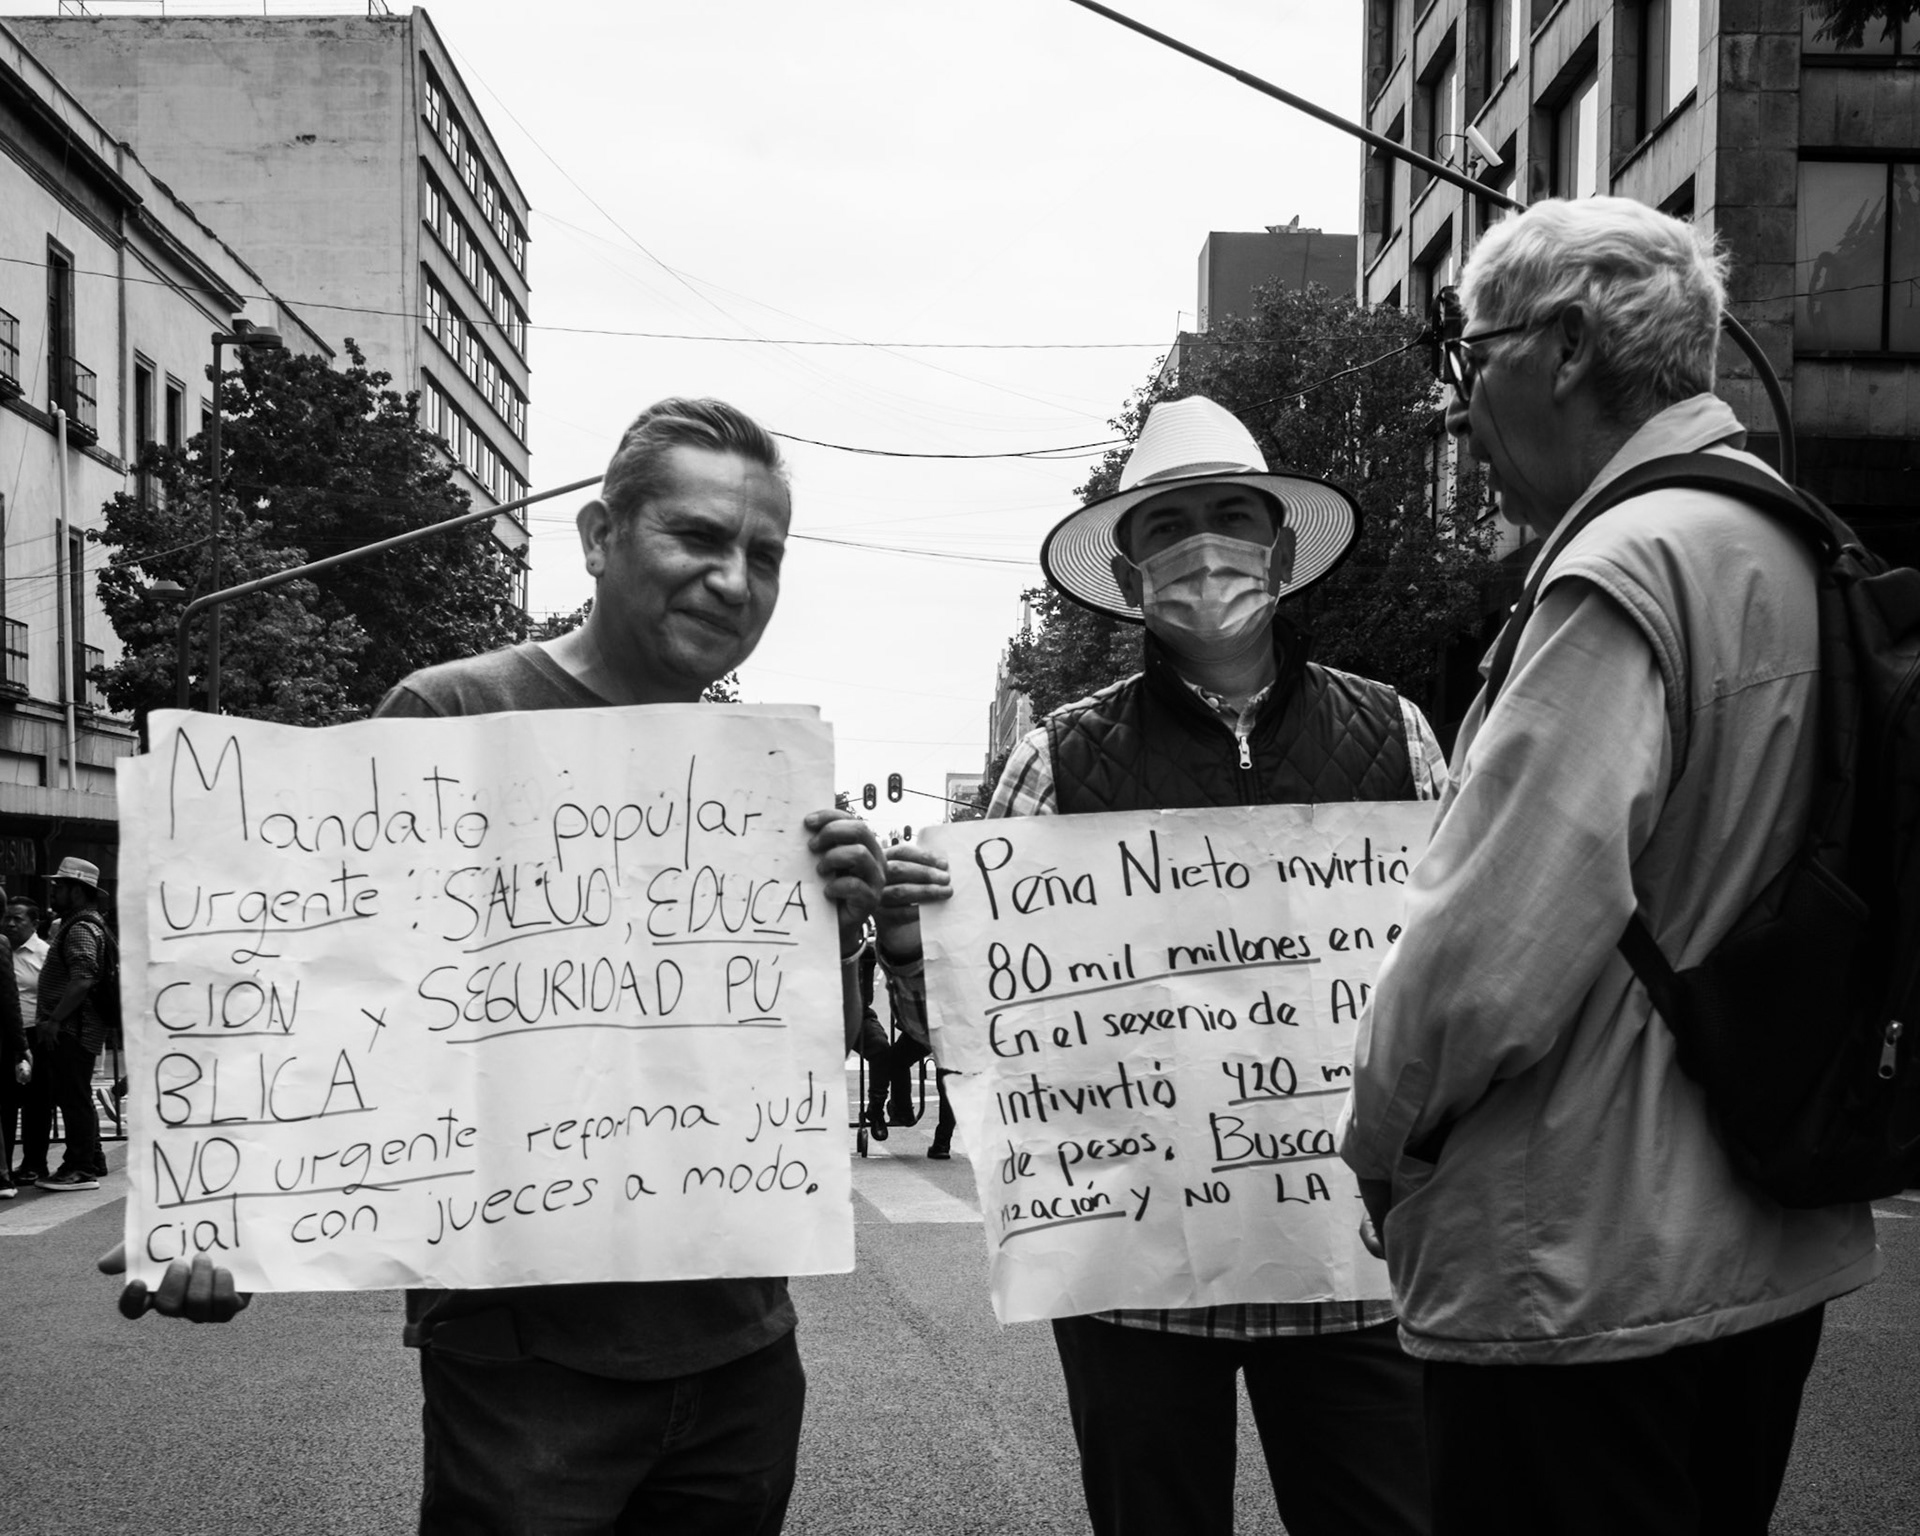 Mandato popular
urgente: SALUD, EDUCA
CIÓN y SEGURIDAD PÚ
BLICA
NO urgente reforma judi
cial con jueces a modo.
Peña Nieto invirtió
80 mil millones en e
En el sexenio de
intivirtió 420 m
de pesos. Busca
nización y NO LA